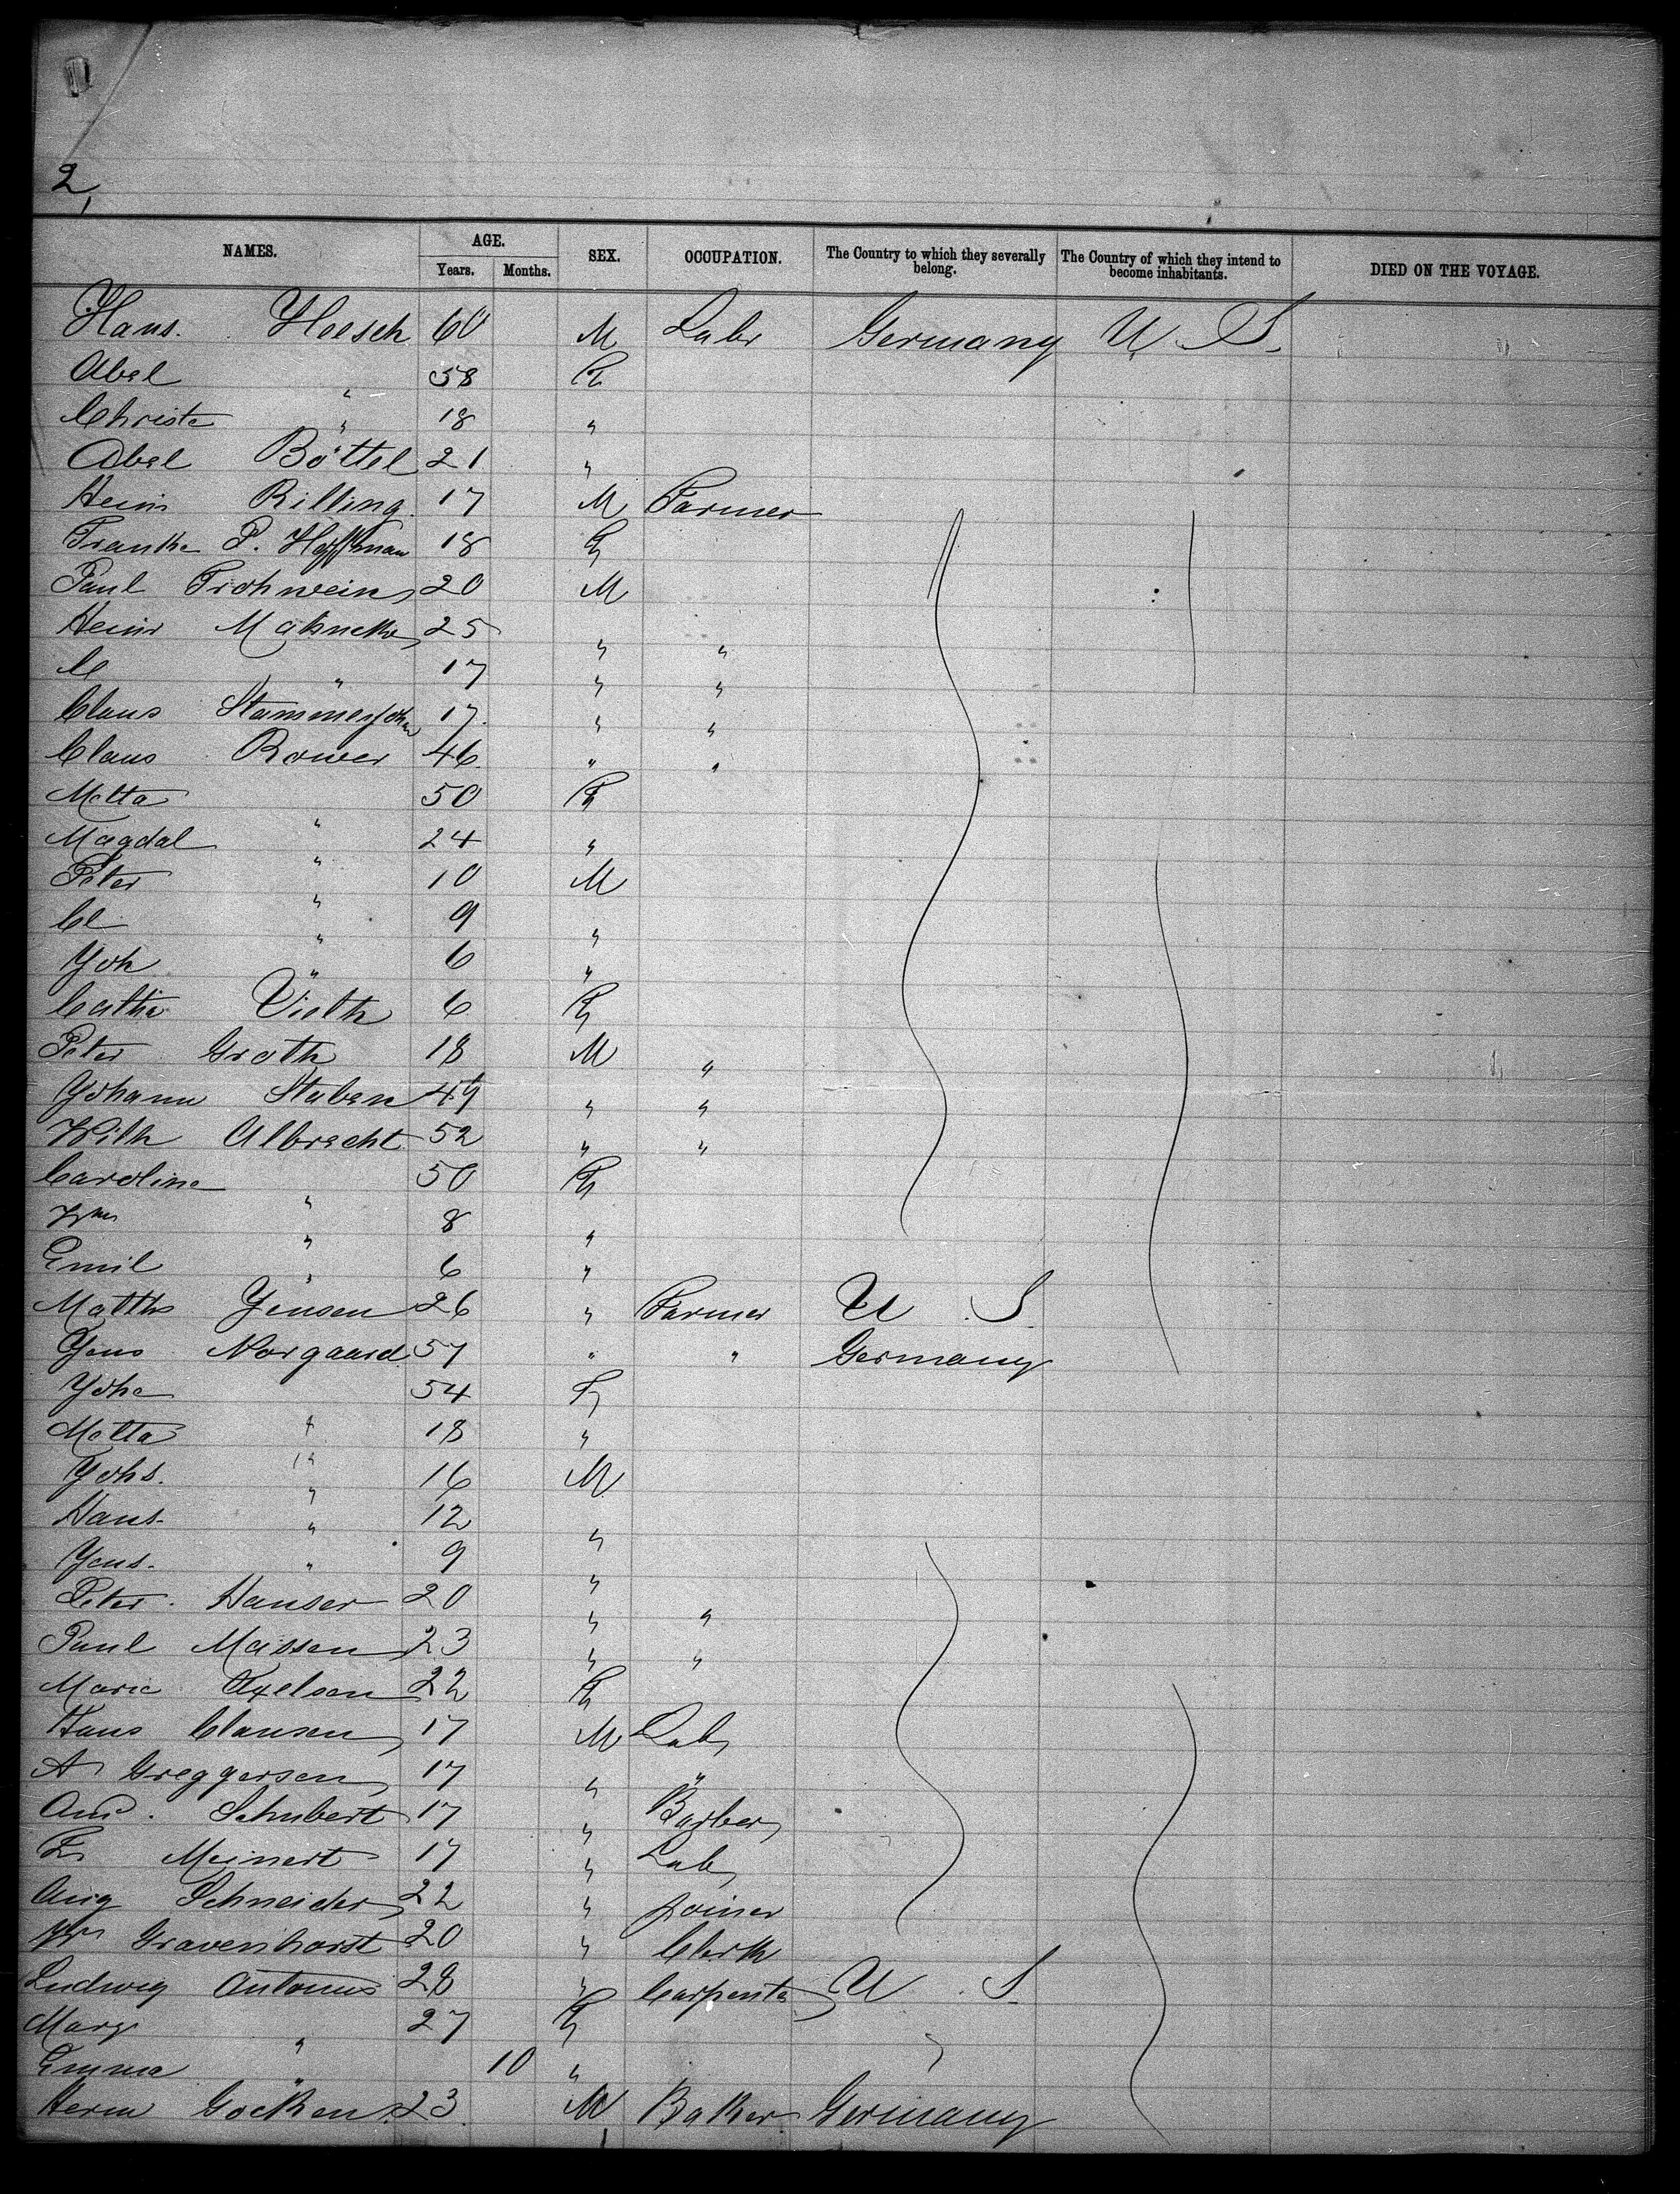 2,
NAMES. AGE. SEX. OCCUPATION. The Country to which they severally belong. The Country of which they intend to become inhabitants. DIED ON THE VOYAGE.
Years. Months.
Hans. Hoesch 60 M Labr Germany U. S.
Abel " 58 F
Christe " 18 "
Abel Böttel 21 "
Heinr Rilling. 17 M Farmer
P. Hoffman 18 F
Paul Frohwein 20 M
Heinr 25 " "
Cl " 17 " "
Claus Stammerjohn 17. " "
Claus Rower 46. " "
Metta " 50 F
Magdal " 24 "
Peter " 10 M
Cl " 9 "
Joh " 6 "
Cathe Vieth 6 F
Peter Groth 18 M "
Johann Staben 49 " "
Wilh Albrecht 52 " "
Caroline " 50 F
Wm " 8 "
Emil " 6 "
Matths Jensen 26 " Farmer U. S.
Jens Norgaard 57 " " Germany
Joha " 54 F
Metta " 18 "
Johs. " 16 M
Hans. " 12 "
Jens. " 9 "
Peter. Hansen 20 " "
Paul Massen 23 " "
Marie Axelsen 22 F
Hans Clausen 17 M Lab
A Greggersen 17 " "
Schubert 17 " Barber
Fr Meinert 17 " Lab
Aug Schneider 22 " joiner
Wm Gravenhorst 20 " Clerk
Ludwig Antonus 28 " Carpenter U. S.
Marg " 27 F "
Emma " 10 "
Herm Gocken 23. M Baker Germany